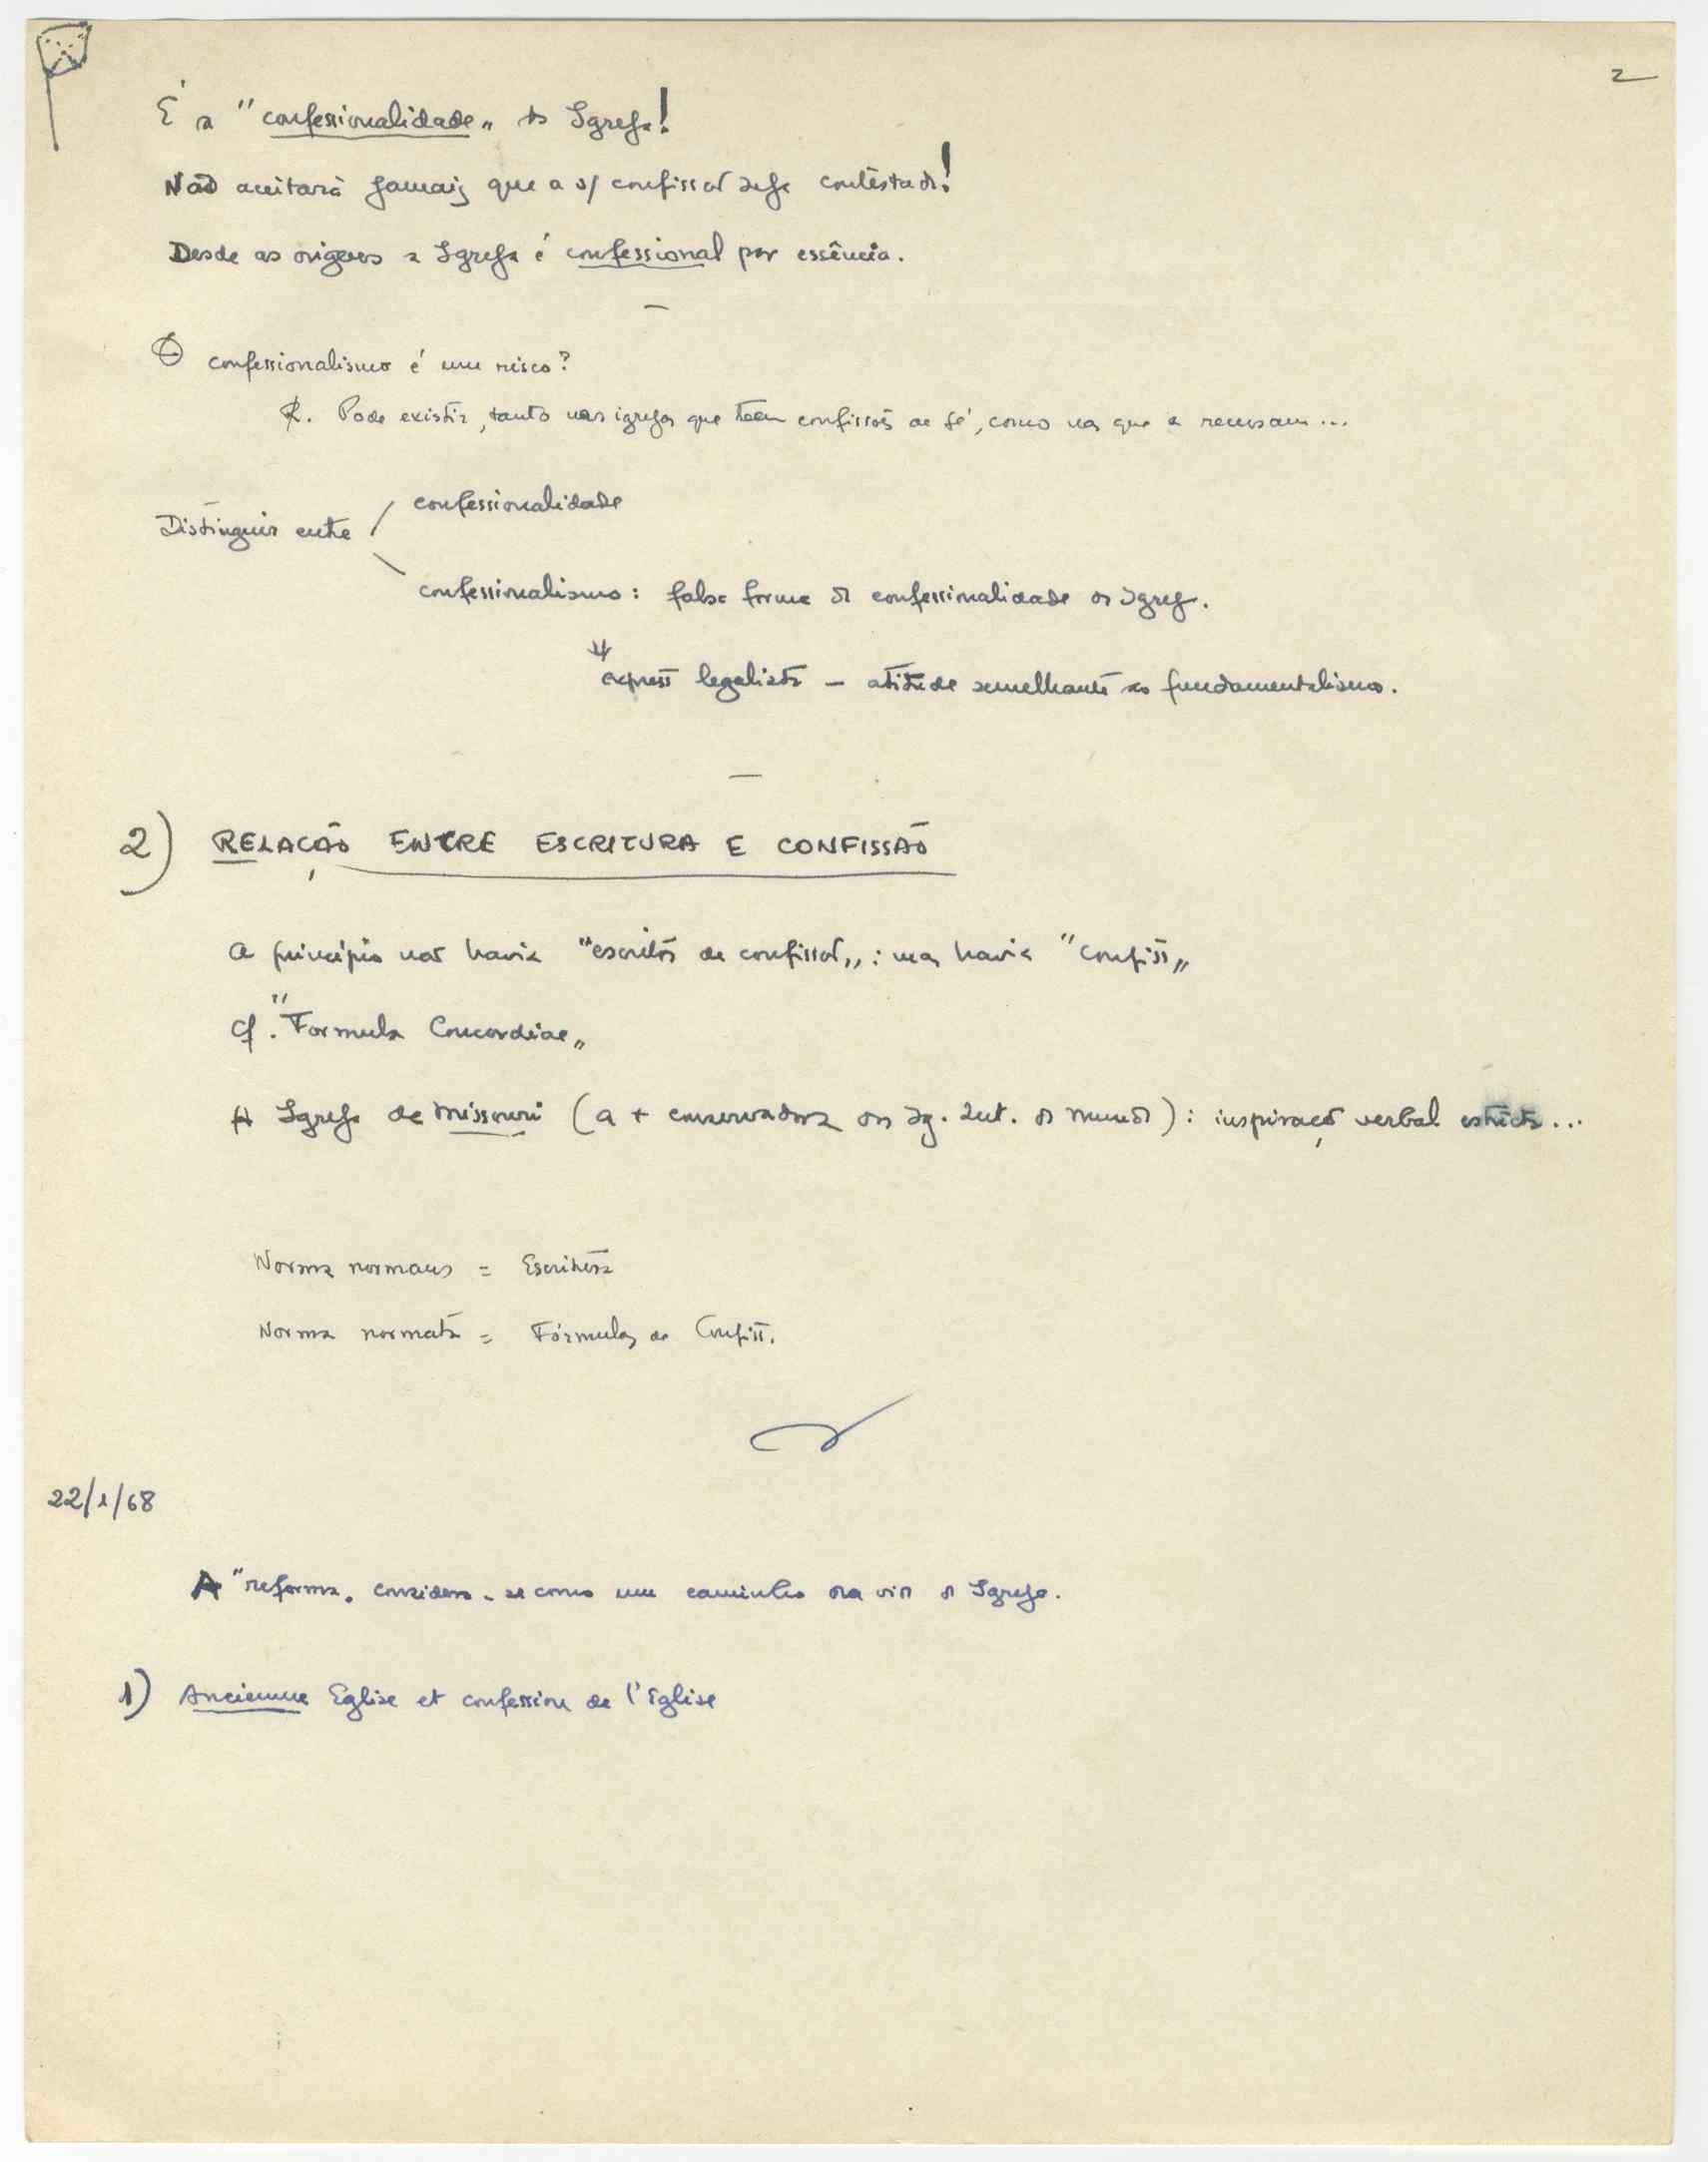 2
É a "confessionalidade" da Igreja!
Não aceitará jamais que a s/ confissão seja contestada!
Desde as origens a Igreja é confessional por essência.
O confessionalismo é um risco?
R. Pode existir, tanto nas igrejas que teem confissões de fé, como nas que a recusam...
confessionalidade
Distinguir entre
confessionalismo: falsa forma da confessionalidade da Igrej.
express legalista – atitude semelhante ao fundamentalismo.
2) RELAÇÃO ENTRE ESCRITURA E CONFISSÃO
A princípio não havia "escritos de confissão": mas havia "confiss"
Cf. "Formula Concordiae"
A Igreja de Missouri (a + conservadora das Ig. Lut. do mundo): inspiração verbal estricta...
Norma normans = Escritura
Norma normata = Fórmulas de Confiss.
22/1/68
A "reforma" considera-se como um caminho da Igreja.
1) Ancienne Eglise et confession de l'Eglise